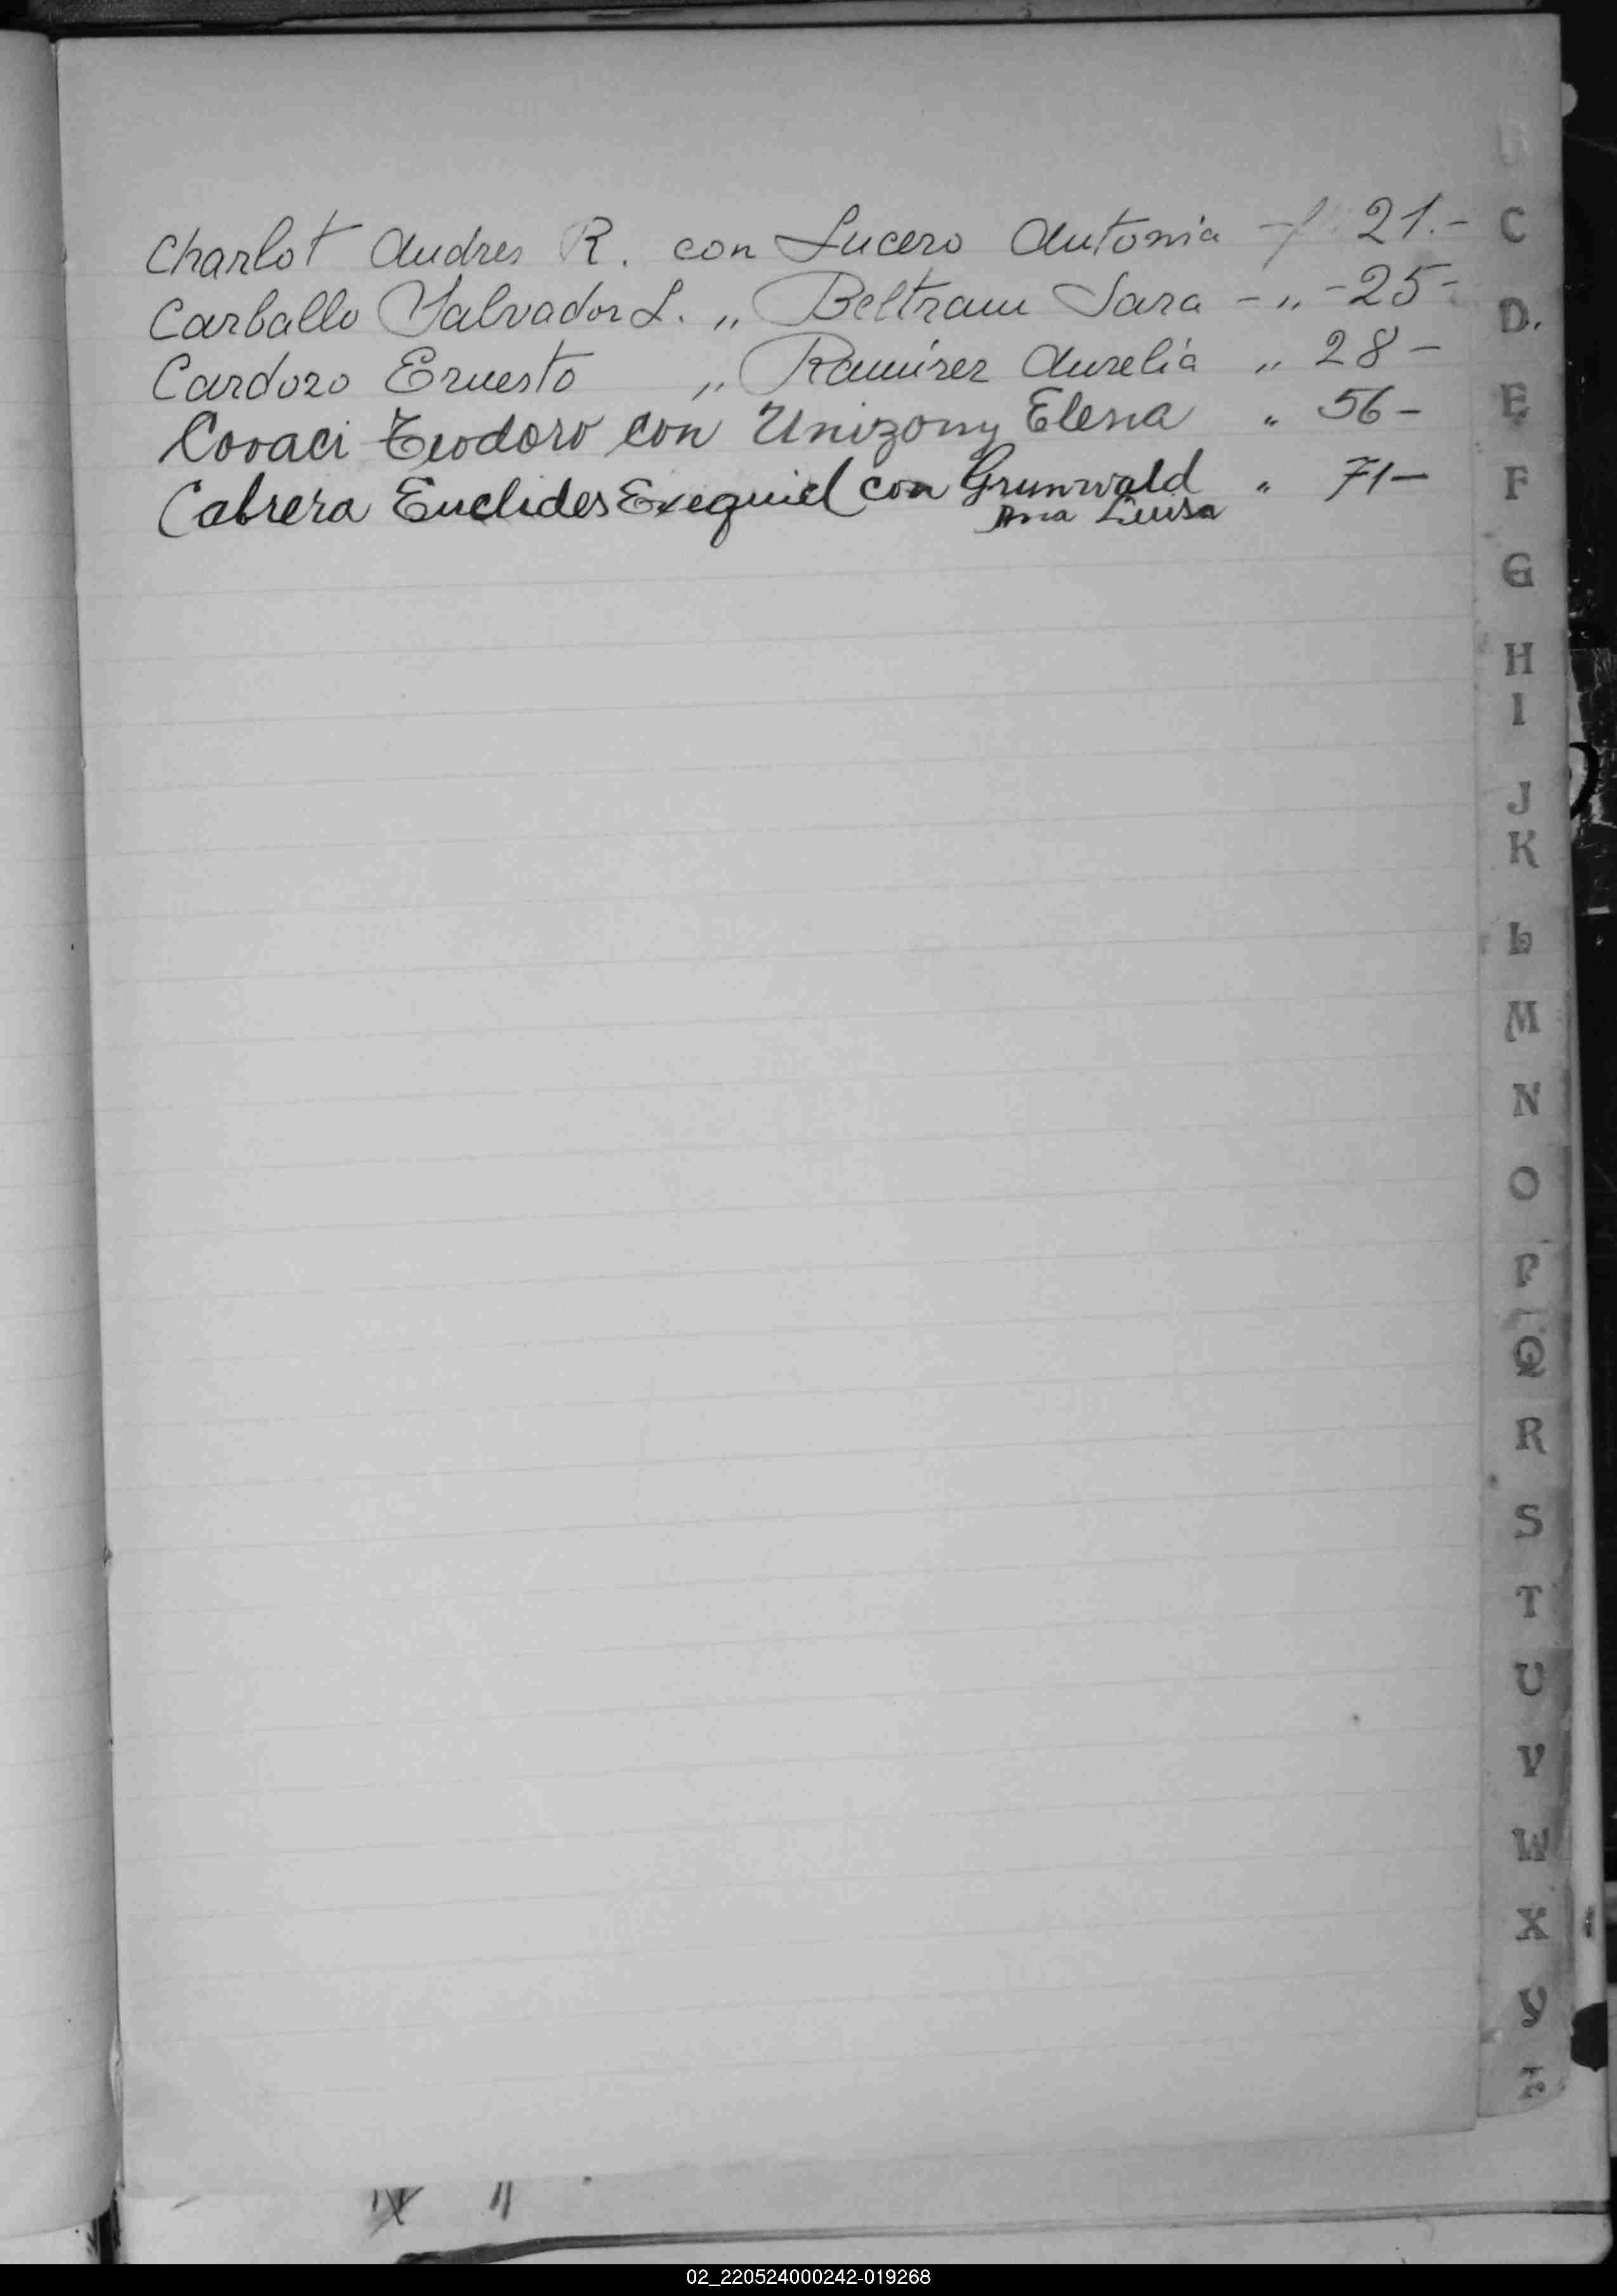 Charlot Andres R. con Lucero Antonia - f 21.-
Carballo Salvador L. „ Beltram Sara - „ - 25 -
Cardozo Ernesto „ Ramirez Aurelia „ 28 -
Covaci Teodoro con Unizony Elena „ 56 -
Cabrera Euclides Exequiel con Grunwald „ 71 -
Ana Luisa
C
D.
E
F
G
H
I
J
K
L
M
N
O
P
Q
R
S
T
U
V
W
X
Y
Z
02_220524000242-019268